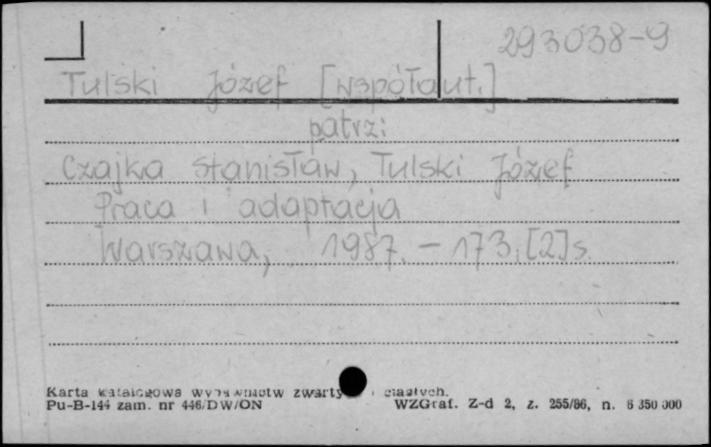 293038-9
Tulski Józef [współaut.]
patrz:
Czajka Stanisław, Tulski Józef
Praca i adaptacja
Warszawa, 1987. - 173, [2] s.
Karta katalogowa wydawnictw zwarty i ciągłych.
Pu-B-144 zam. nr 446/DW/ON WZGraf. Z-d 2, z. 255/86, n. 6 350 000